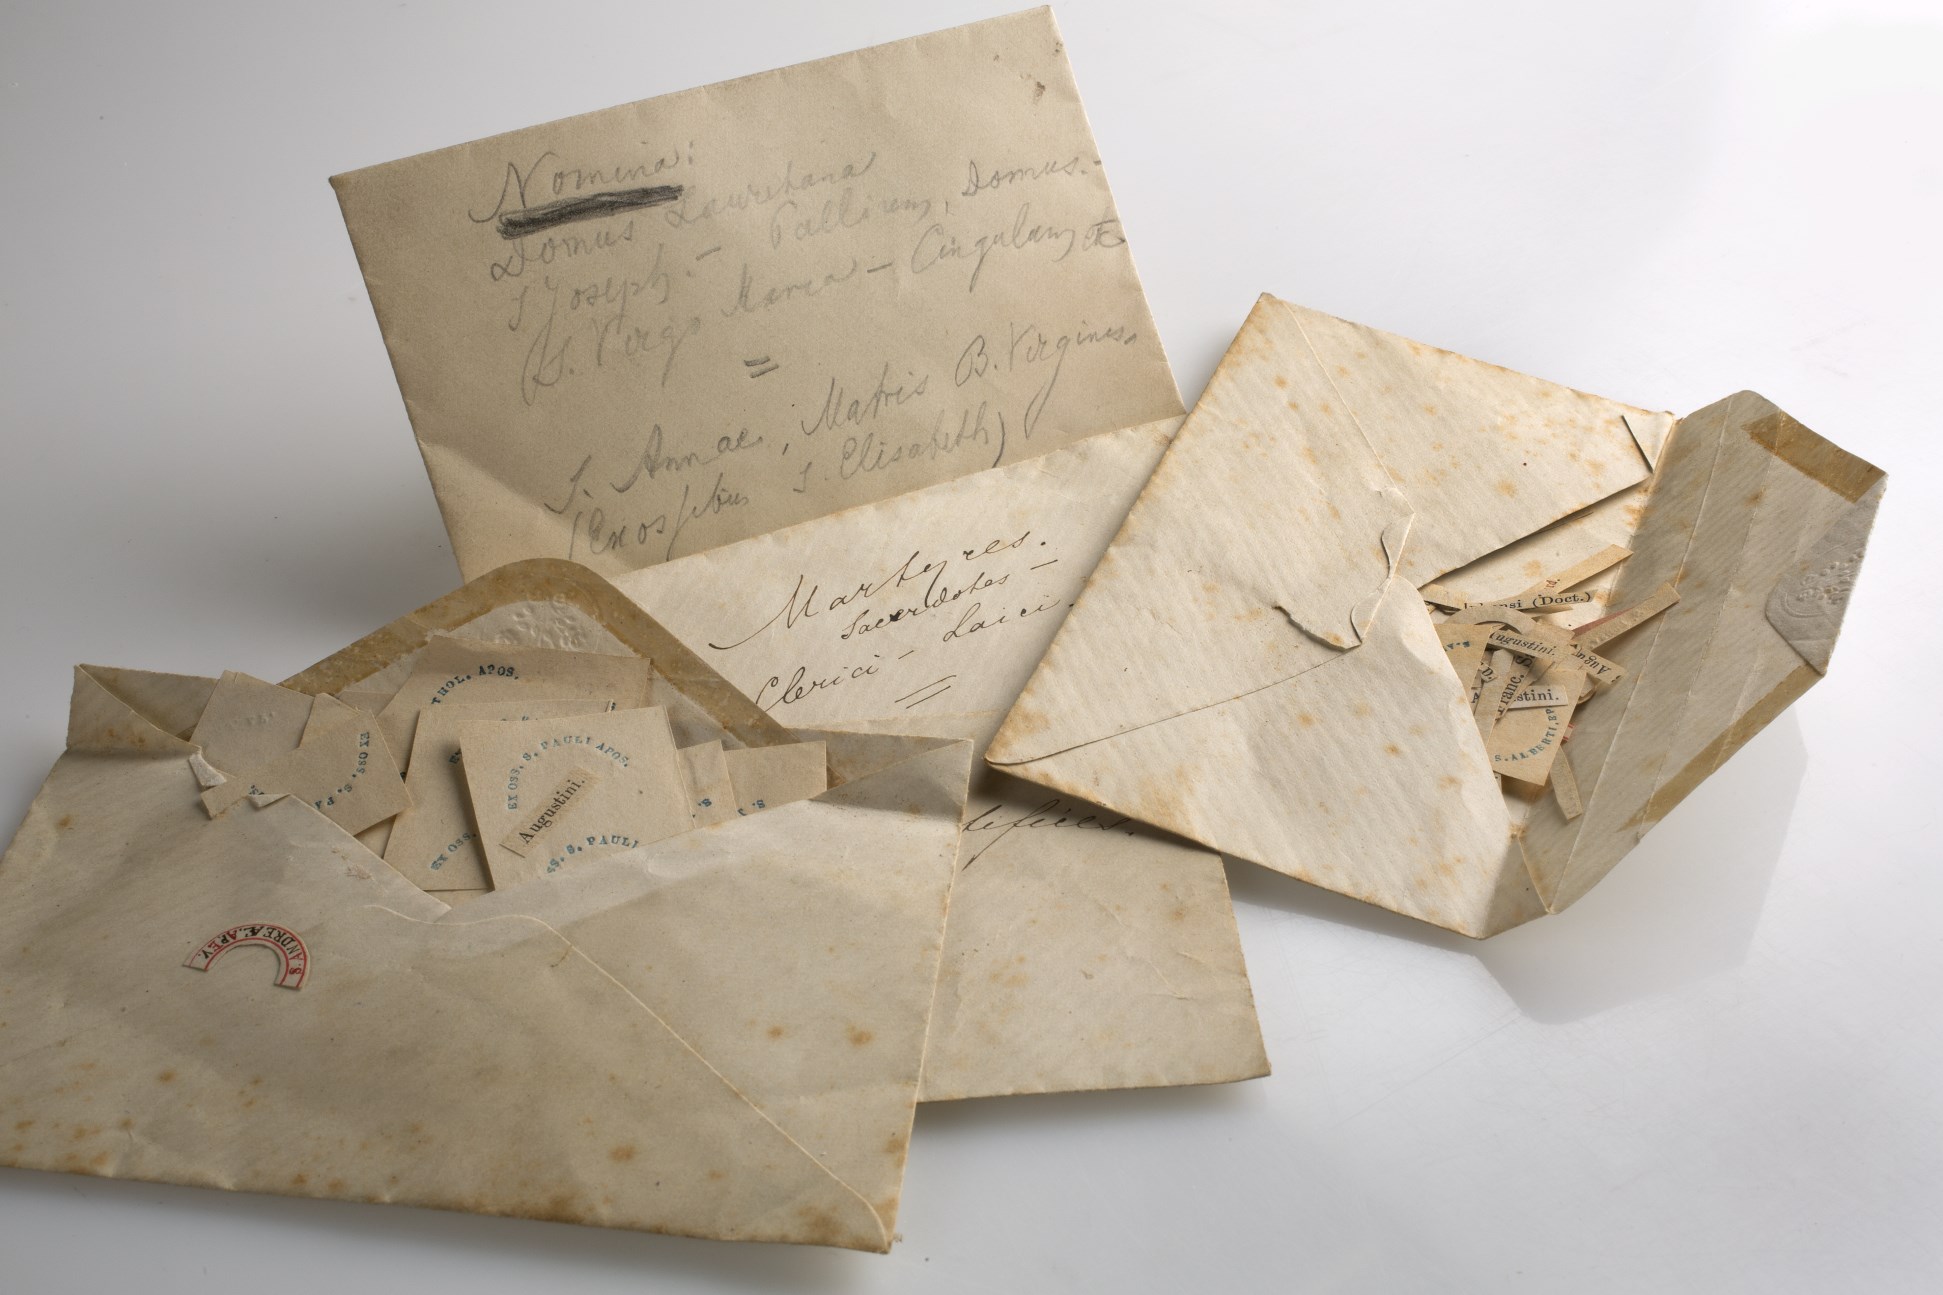 Nomina:
Domus Lauretana
S Joseph. - Pallium, Domus. -
(S. Virgo Maria - Cingulum etc
=
S. Annae, Matris B. Virginis.
(Ex ossibus S. Elisabeth)
Martyres.
Sacerdotes -
Clerici - Laici.
=
tifices.
THOL. APOS.
EX OSS. S. PA
EX OSS. S. PAULI APOS.
Augustini.
SS. S. PAULI
EX OSS.
S.
S. J
S. ANDREÆ. AP. EV.
ensi (Doct.)
ugustini.
Augu
Franc.
stini.
S. ALBERTI. EP